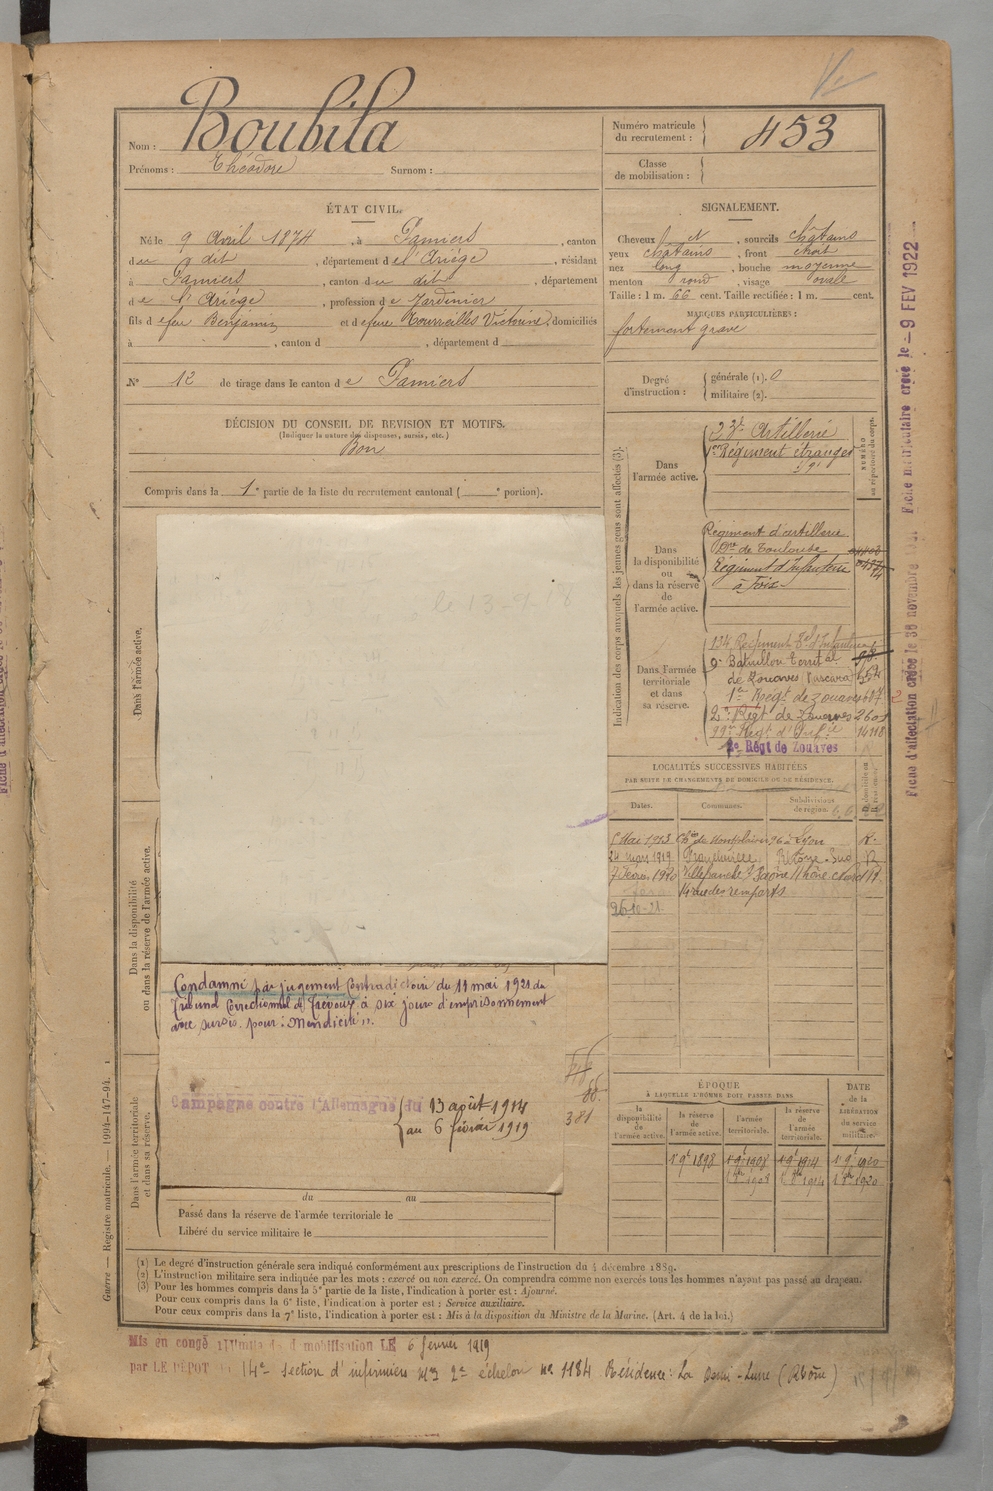 Nom : Boubila
Prénoms : Théodore Surnom :
Numéro matricule du recrutement : 453
Classe de mobilisation :
ÉTAT CIVIL.
Né le 9 Avril 1874, à Pamiers, canton
du dit, département de l'Ariège, résidant
à Pamiers, canton du dit, département
de l'Ariège, profession de Jardinier
fils de feu Benjamin et de feue Victorine, domiciliés
à , canton d , département d
N° 12 de tirage dans le canton de Pamiers
DÉCISION DU CONSEIL DE REVISION ET MOTIFS.
(Indiquer la nature des dispenses, sursis, etc.)
Bon
Compris dans la 1e partie de la liste du recrutement cantonal ( e portion).
SIGNALEMENT.
Cheveux et , sourcils châtains
yeux châtains, front étroit
nez long, bouche moyenne
menton rond, visage ovale
Taille : 1 m. 66 cent. Taille rectifiée : 1 m. cent.
MARQUES PARTICULIÈRES :
fortement gravé
Degré d'instruction : générale (1). 0
militaire (2).
Indication des corps auxquels les jeunes gens sont affectés (3).
NUMÉRO au répertoire du corps.
Dans l'armée active.
Artillerie
1er Régiment étranger
Dans la disponibilité ou dans la réserve de l'armée active.
Régiment d'artillerie
de Toulouse
Régiment d'Infanterie
à Foix
Dans l'armée territoriale et dans sa réserve.
134 Régiment d'Infanterie
9e Bataillon Territal
de Zouaves
1er Régt de zouaves
2e Régt de Zouaves 2601
99e Régt d'Infie 14118
2e Régt de Zouaves
LOCALITÉS SUCCESSIVES HABITÉES
PAR SUITE DE CHANGEMENTS DE DOMICILE OU DE RÉSIDENCE.
Dates. Communes. Subdivisions de région.
Mai 1913 Lyon R.
24 mars 1919 Francheville Rhône-Sud R
7 Févr. 1920 Villefranche s/ Saône R
rue des remparts
26-10-21
le 13-9-18
Dans l'armée active.
Dans la disponibilité ou dans la réserve de l'armée active.
Dans l'armée territoriale et dans sa réserve.
Condamné par jugement Contradictoire du 11 mai 1921 du
Tribunal Correctionnel de Trévoux à six jours d'emprisonnement
avec sursis pour : "Mendicité".
Campagne contre l'Allemagne du 13 août 1914
au 6 février 1919
381
du au
Passé dans la réserve de l'armée territoriale le
Libéré du service militaire le
ÉPOQUE
À LAQUELLE L'HOMME DOIT PASSER DANS
DATE de la LIBÉRATION du service militaire.
la disponibilité de l'armée active. la réserve de l'armée active. l'armée territoriale. la réserve de l'armée territoriale.
1er 9e 1898 1er 9e 1908 1er 9e 1914 1er 9e 1920
(1) Le degré d'instruction générale sera indiqué conformément aux prescriptions de l'instruction du 4 décembre 1889.
(2) L'instruction militaire sera indiquée par les mots : exercé ou non exercé. On comprendra comme non exercés tous les hommes n'ayant pas passé au drapeau.
(3) Pour les hommes compris dans la 5e partie de la liste, l'indication à porter est : Ajourné.
Pour ceux compris dans la 6e liste, l'indication à porter est : Service auxiliaire.
Pour ceux compris dans la 7e liste, l'indication à porter est : Mis à la disposition du Ministre de la Marine. (Art. 4 de la loi.)
Mis en congé illimité de démobilisation LE 6 février 1919
par LE DÉPOT 14e Section d'infirmiers 2e échelon no 1184 Résidence : La Demi-Lune (Rhône)
Guerre — Registre matricule. — 1994-147-94.
Fiche d'affectation créée le 30 novembre Fiche matriculaire créée le - 9 FEV 1922